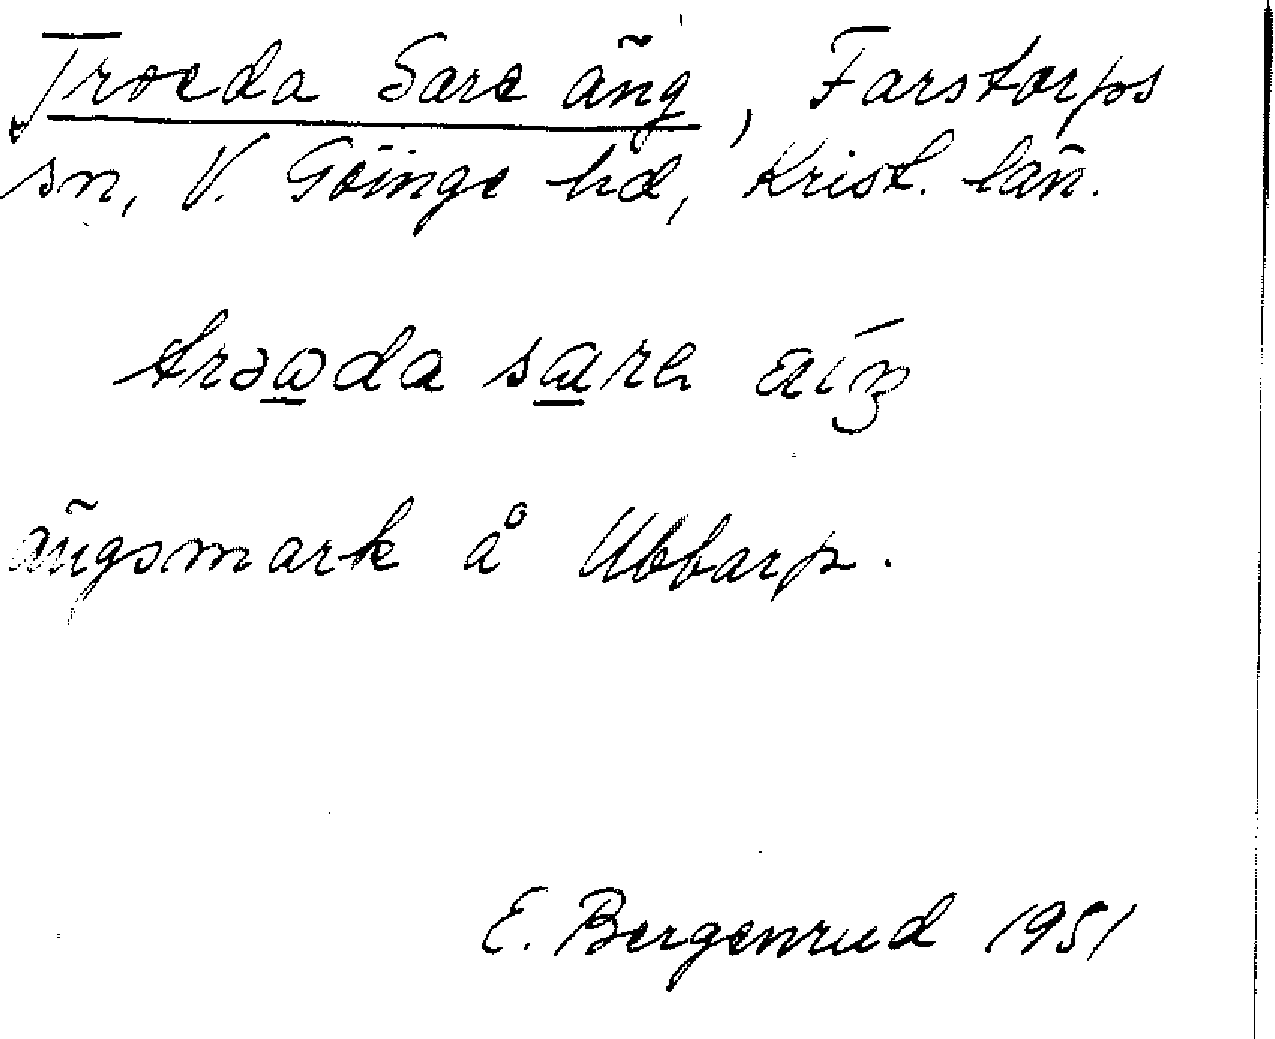 Troeda Sare äng, Farstorps
sn, V. Göinge hd, Krist. län.
trəωda sarə äiŋ
ängsmark å Ubbarp.
E. Bergenrud 1951